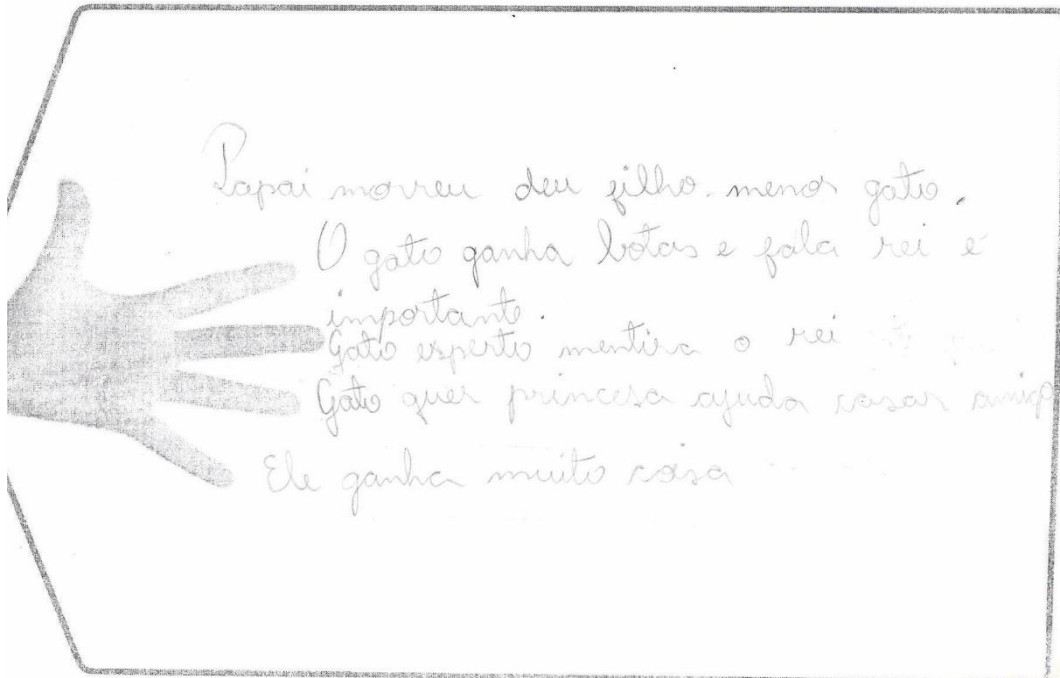 Papai morreu deu filho menor gato.
O gato ganha botas e fala rei é
importante.
Gato esperto mentira o rei
Gato quer princesa ajuda casar amigo
Ele ganha muito coisa